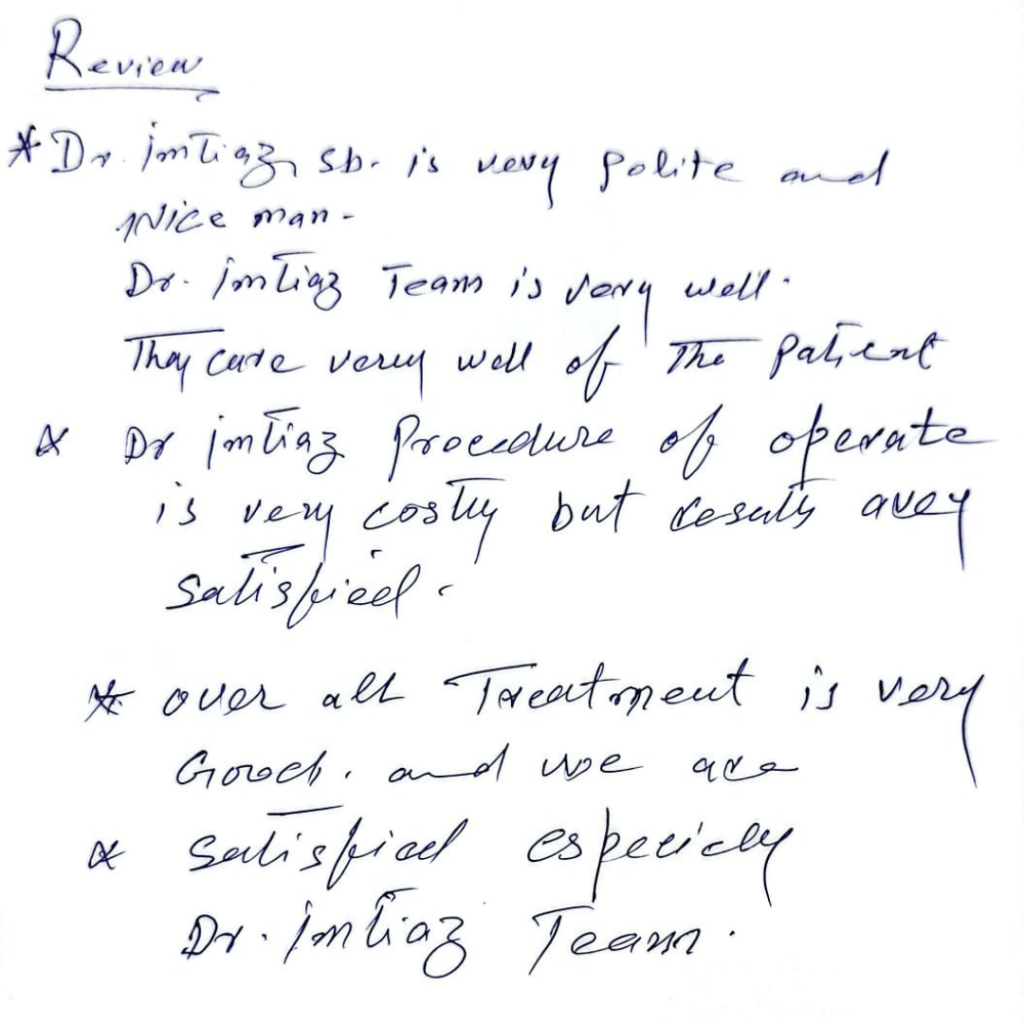 Review
* Dr. imtiaz sb. is very polite and
Nice man -
Dr. imtiaz Team is very well.
They care very well of the patient
* Dr imtiaz Procedure of operate
is very costly but results avey
Satisfied.
* over all Treatment is very
Good. and we are
* Satisfied especicly
Dr. imtiaz Team.